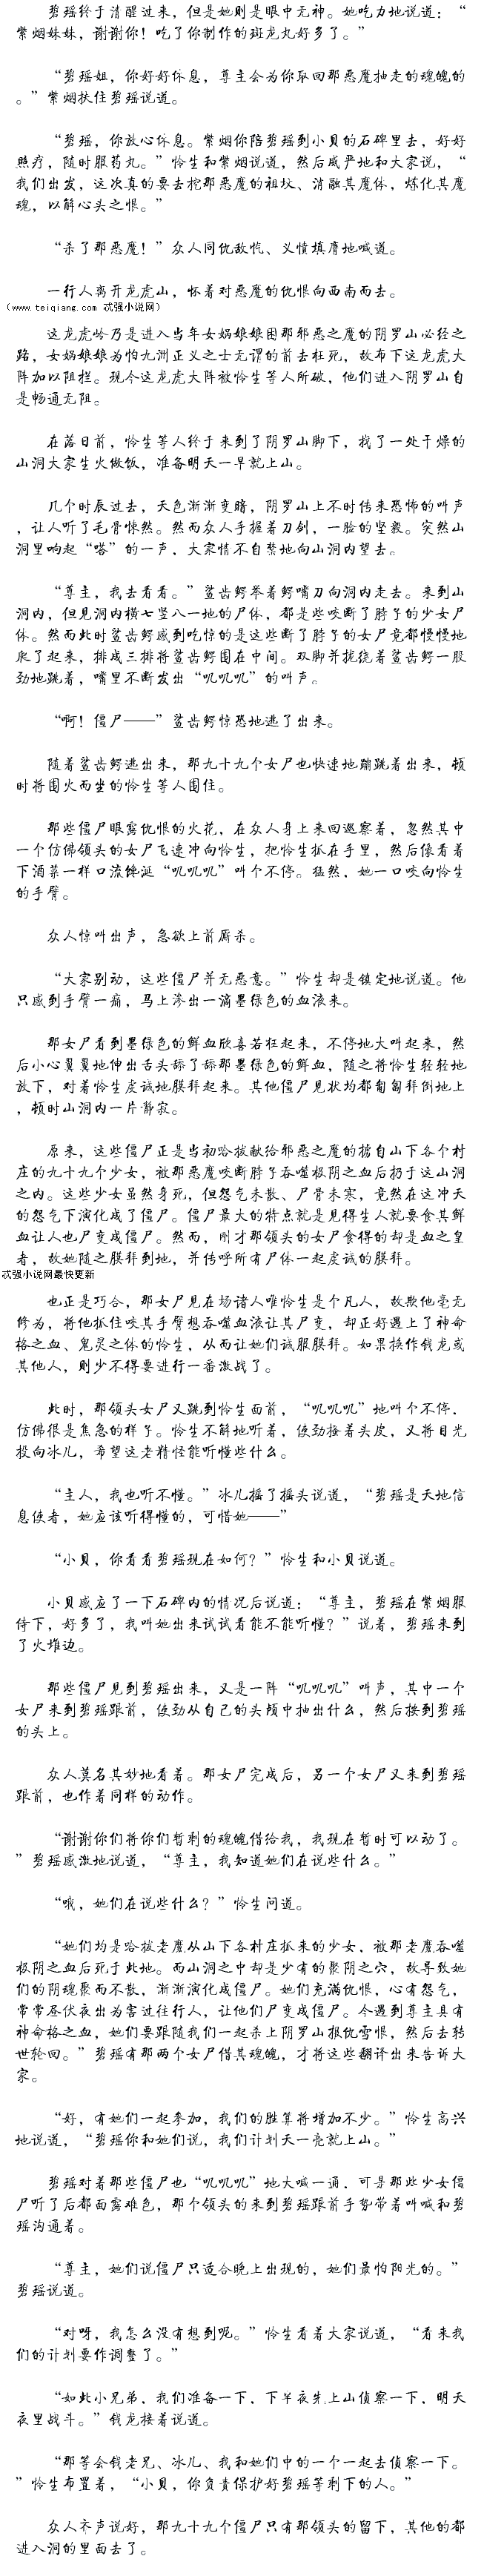 碧瑶终于清醒过来，但是她则是眼中无神。她吃力地说道：“
紫烟妹妹，谢谢你！吃了你制作的斑龙丸好多了。”
“碧瑶姐，你好好休息，尊主会为你取回那恶魔抽走的魂魄的
。”紫烟扶住碧瑶说道。
“碧瑶，你放心休息。紫烟你陪碧瑶到小贝的石碑里去，好好
照疗，随时服药丸。”怜生和紫烟说道，然后威严地和大家说，“
我们出发，这次真的要去挖那恶魔的祖坟、消融其魔体，炼化其魔
魂，以解心头之恨。”
“杀了那恶魔！”众人同仇敌忾、义愤填膺地喊道。
一行人离开龙虎山，怀着对恶魔的仇恨向西南而去。
（www.teiqiang.com 忒强小说网）
这龙虎岭乃是进入当年女娲娘娘困那邪恶之魔的阴罗山必经之
路，女娲娘娘为怕九洲正义之士无谓的前去枉死，故布下这龙虎大
阵加以阻拦。现今这龙虎大阵被怜生等人所破，他们进入阴罗山自
是畅通无阻。
在落日前，怜生等人终于来到了阴罗山脚下，找了一处干燥的
山洞大家生火做饭，准备明天一早就上山。
几个时辰过去，天色渐渐变暗，阴罗山上不时传来恐怖的叫声
，让人听了毛骨悚然。然而众人手握着刀剑，一脸的坚毅。突然山
洞里响起“嗒”的一声，大家情不自禁地向山洞内望去。
“尊主，我去看看。”鲨齿鳄举着鳄嘴刀向洞内走去。来到山
洞内，但见洞内横七竖八一地的尸体，都是些咬断了脖子的少女尸
体。然而此时鲨齿鳄感到吃惊的是这些断了脖子的女尸竟都慢慢地
爬了起来，排成三排将鲨齿鳄围在中间。双脚并拢绕着鲨齿鳄一股
劲地跳着，嘴里不断发出“叽叽叽”的叫声。
“啊！僵尸——”鲨齿鳄惊恐地逃了出来。
随着鲨齿鳄逃出来，那九十九个女尸也快速地蹦跳着出来，顿
时将围火而坐的怜生等人围住。
那些僵尸眼露仇恨的火花，在众人身上来回巡察着，忽然其中
一个仿佛领头的女尸飞速冲向怜生，把怜生抓在手里，然后像看着
下酒菜一样口流馋涎“叽叽叽”叫个不停。猛然，她一口咬向怜生
的手臂。
众人惊叫出声，急欲上前厮杀。
“大家别动，这些僵尸并无恶意。”怜生却是镇定地说道。他
只感到手臂一痛，马上渗出一滴墨绿色的血液来。
那女尸看到墨绿色的鲜血欣喜若狂起来，不停地大叫起来，然
后小心翼翼地伸出舌头舔了舔那墨绿色的鲜血，随之将怜生轻轻地
放下，对着怜生虔诚地膜拜起来。其他僵尸见状均都匍匐拜倒地上
，顿时山洞内一片静寂。
原来，这些僵尸正是当初哈拔献给邪恶之魔的掳自山下各个村
庄的九十九个少女，被那恶魔咬断脖子吞噬极阴之血后扔于这山洞
之内。这些少女虽然身死，但怨气未散、尸骨未寒，竟然在这冲天
的怨气下演化成了僵尸。僵尸最大的特点就是见得生人就要食其鲜
血让人也尸变成僵尸。然而，刚才那领头的女尸食得的却是血之皇
者，故她随之膜拜到地，并传呼所有尸体一起虔诚的膜拜。
忒强小说网最快更新
也正是巧合，那女尸见在场诸人唯怜生是个凡人，故欺他毫无
修为，将他抓住咬其手臂想吞噬血液让其尸变，却正好遇上了神命
格之血、鬼灵之体的怜生，从而让她们诚服膜拜。如果换作钱龙或
其他人，则少不得要进行一番激战了。
此时，那领头女尸又跳到怜生面前，“叽叽叽”地叫个不停，
仿佛很是焦急的样子。怜生不解地听着，使劲挠着头皮，又将目光
投向冰儿，希望这老精怪能听懂些什么。
“主人，我也听不懂。”冰儿摇了摇头说道，“碧瑶是天地信
息使者，她应该听得懂的，可惜她——”
“小贝，你看看碧瑶现在如何？”怜生和小贝说道。
小贝感应了一下石碑内的情况后说道：“尊主，碧瑶在紫烟服
侍下，好多了，我叫她出来试试看能不能听懂？”说着，碧瑶来到
了火堆边。
那些僵尸见到碧瑶出来，又是一阵“叽叽叽”叫声，其中一个
女尸来到碧瑶跟前，使劲从自己的头颅中抽出什么，然后按到碧瑶
的头上。
众人莫名其妙地看着。那女尸完成后，另一个女尸又来到碧瑶
跟前，也作着同样的动作。
“谢谢你们将你们暂剩的魂魄借给我，我现在暂时可以动了。
”碧瑶感激地说道，“尊主，我知道她们在说些什么。”
“哦，她们在说些什么？”怜生问道。
“她们均是哈拔老魔从山下各村庄抓来的少女，被那老魔吞噬
极阴之血后死于此地。而山洞之中却是少有的聚阴之穴，故导致她
们的阴魂聚而不散，渐渐演化成僵尸。她们充满仇恨，心有怨气，
常常昼伏夜出为害过往行人，让他们尸变成僵尸。今遇到尊主具有
神命格之血，她们要跟随我们一起杀上阴罗山报仇雪恨，然后去转
世轮回。”碧瑶有那两个女尸借其魂魄，才将这些翻译出来告诉大
家。
“好，有她们一起参加，我们的胜算将增加不少。”怜生高兴
地说道，“碧瑶你和她们说，我们计划天一亮就上山。”
碧瑶对着那些僵尸也“叽叽叽”地大喊一通，可是那些少女僵
尸听了后都面露难色，那个领头的来到碧瑶跟前手势带着叫喊和碧
瑶沟通着。
“尊主，她们说僵尸只适合晚上出现的，她们最怕阳光的。”
碧瑶说道。
“对呀，我怎么没有想到呢。”怜生看着大家说道，“看来我
们的计划要作调整了。”
“如此小兄弟，我们准备一下，下半夜先上山侦察一下，明天
夜里战斗。”钱龙接着说道。
“那等会钱老兄、冰儿、我和她们中的一个一起去侦察一下。
”怜生布置着，“小贝，你负责保护好碧瑶等剩下的人。”
众人齐声说好，那九十九个僵尸只有那领头的留下，其他的都
进入洞的里面去了。